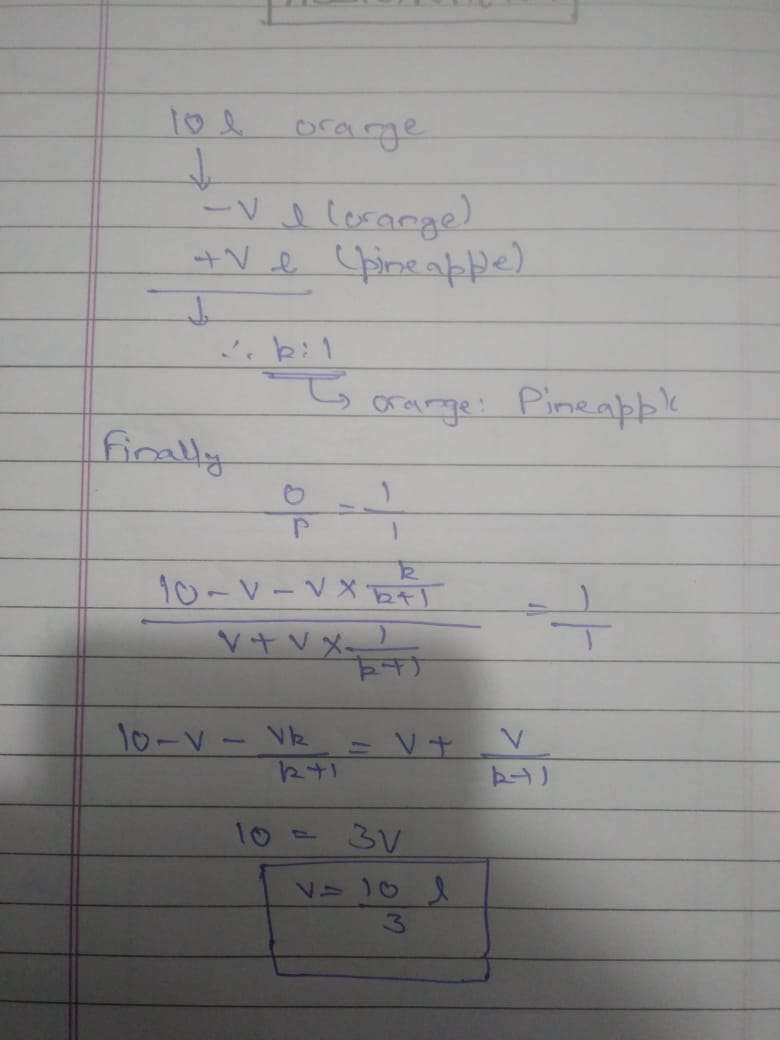 10 l orange
↓
-V l (orange)
+V l (pineapple)
↓
∴ k:1
↳ orange: Pineapple
Finally
O/P = 1/1
(10 - V - V × k/(k+1)) / (V + V × 1/(k+1)) = 1/1
10 - V - Vk/(k+1) = V + V/(k+1)
10 = 3V
V = 10/3 l